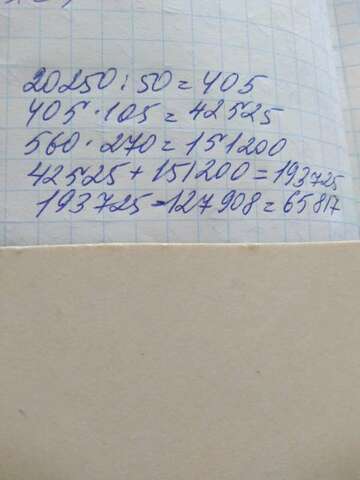 20250 : 50 = 405
405 · 105 = 42525
560 · 270 = 151200
42525 + 151200 = 193725
193725 - 127908 = 65817